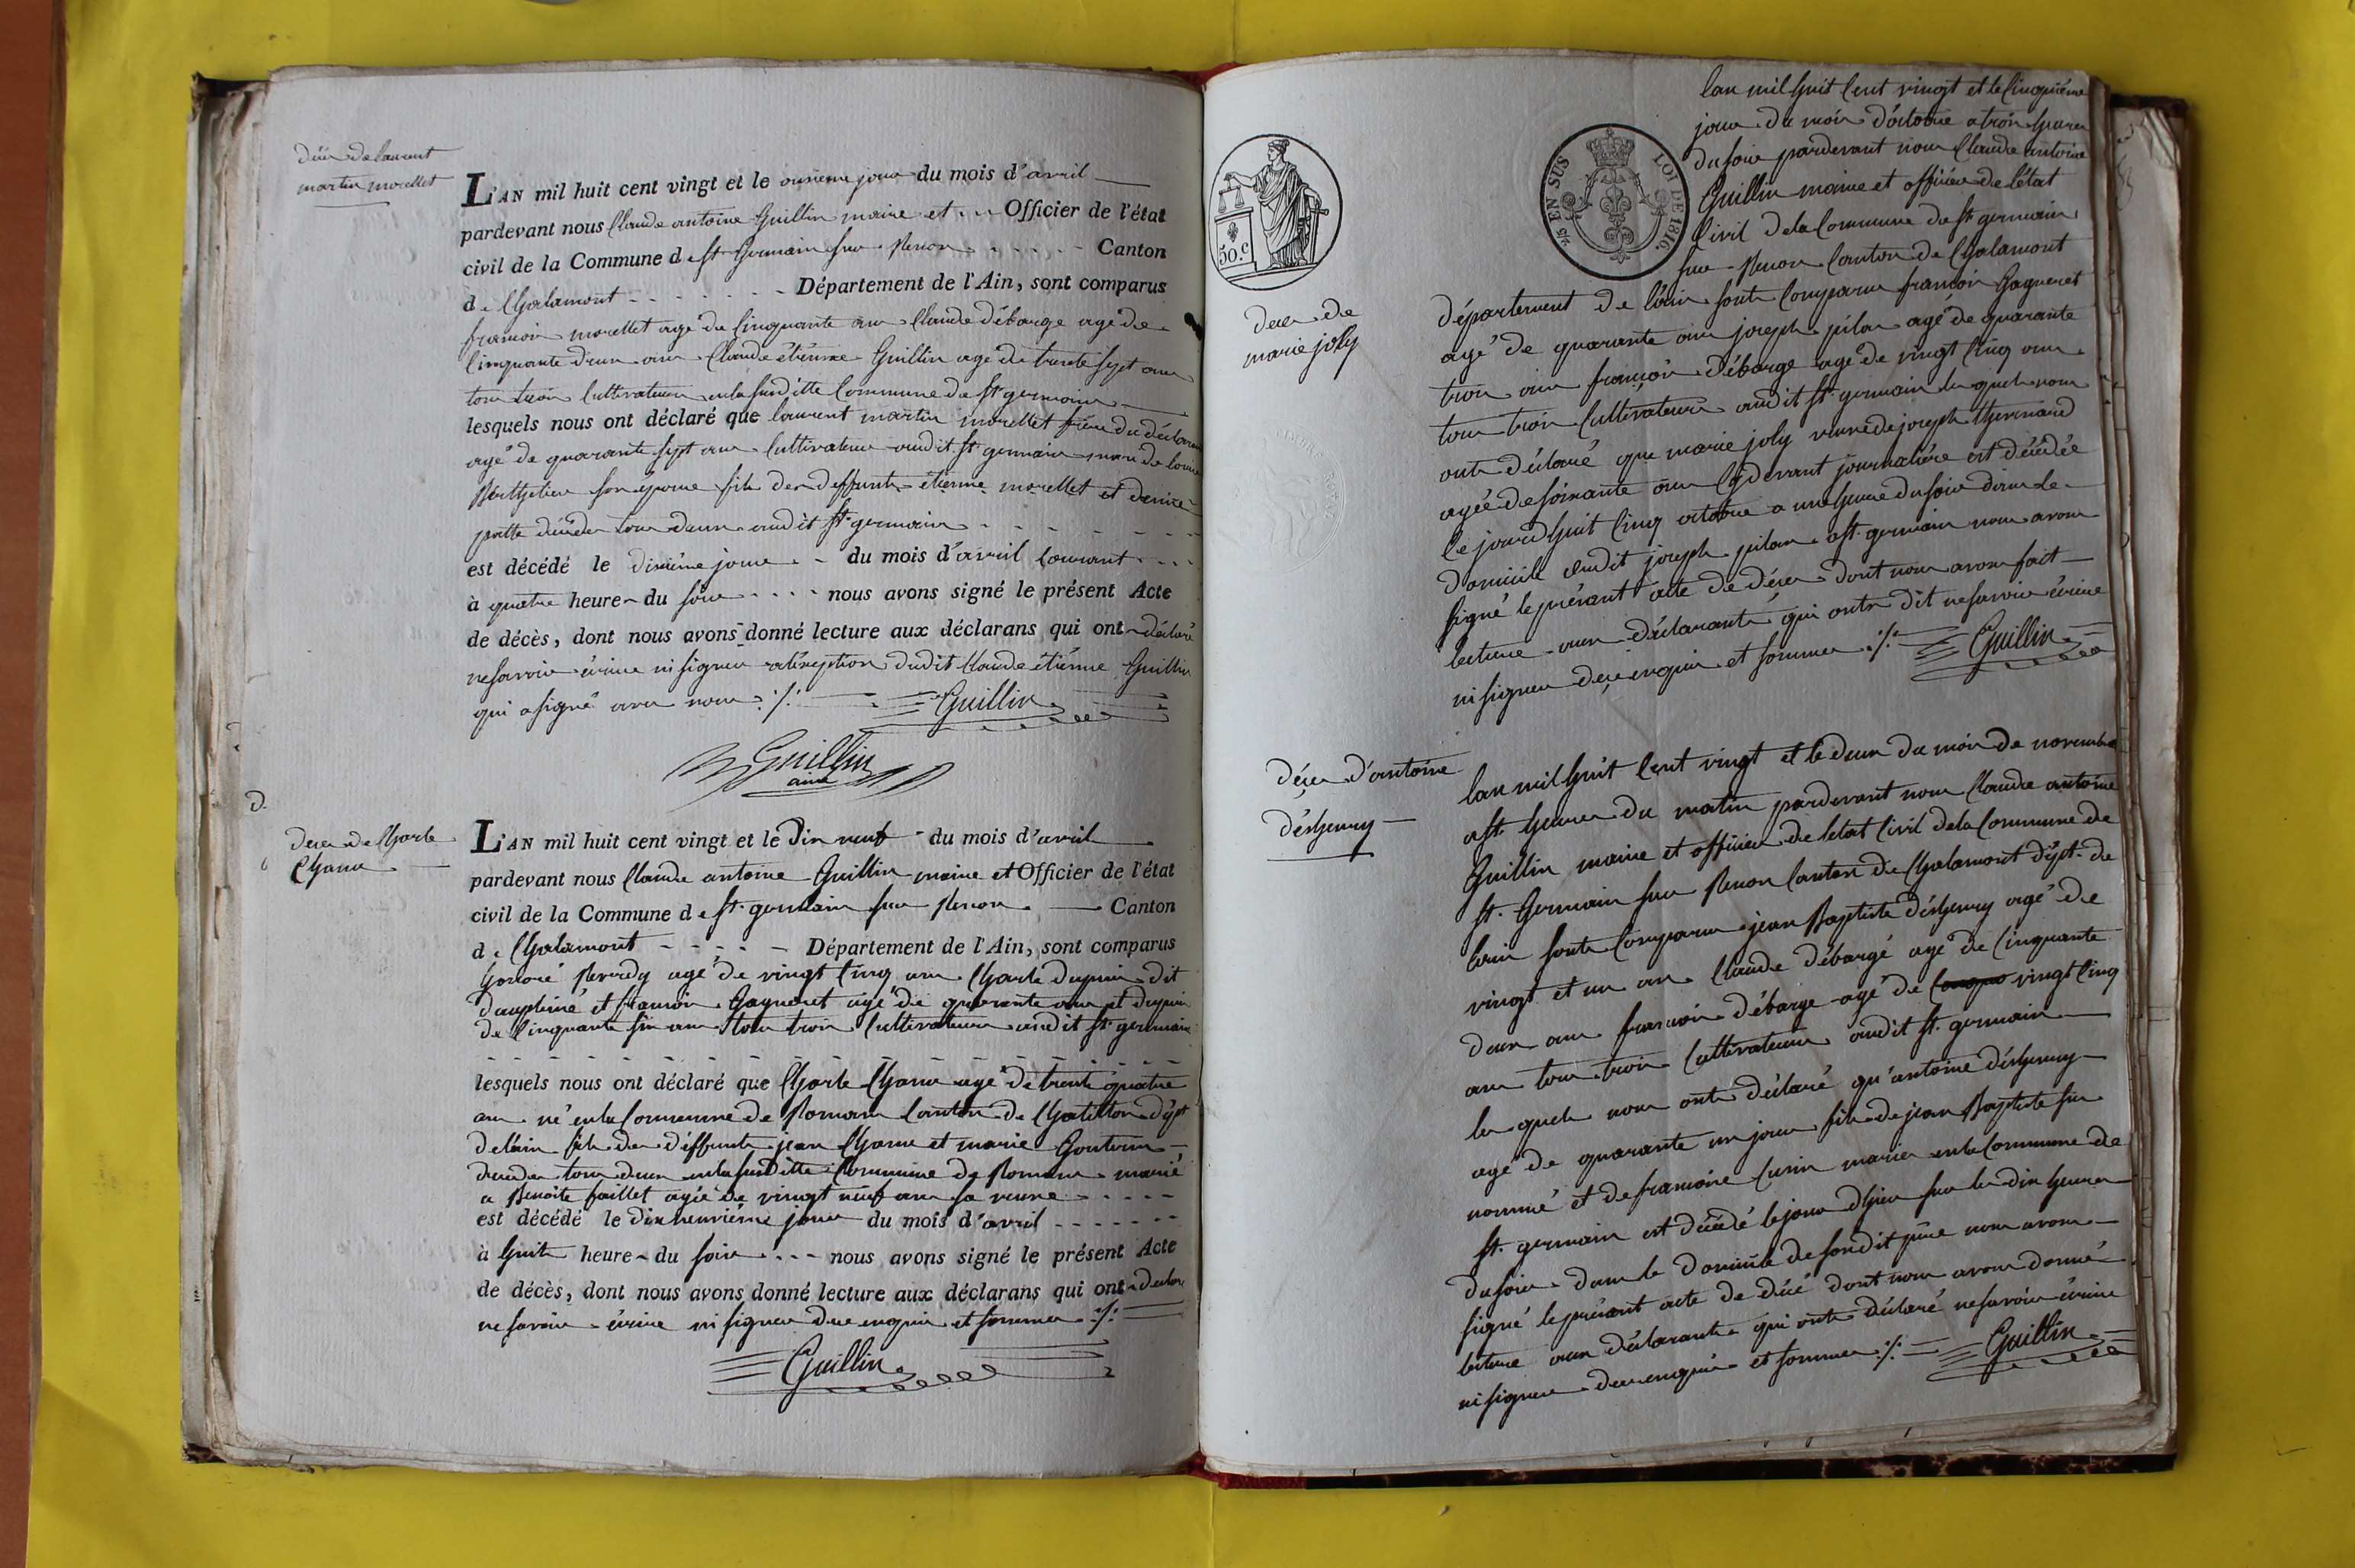 décè de laurent
martin morellet
L'AN mil huit cent vingt et le onzieme jour du mois d'avril
pardevant nous Claude antoine Guillin maire et Officier de l'état
civil de la Commune de st. Germain sur Renon Canton
de Chalamont Département de l'Ain, sont comparus
francois morellet agé de Cinquante ans Claude débarge agé de
Cinquante deux ans Claude étiénne Guillin agé de trente sept ans
tous trois Cultivateurs en la susditte Commune de st germain
lesquels nous ont déclaré que laurent martin morellet frère du déclarant
agé de quarante sept ans Cultivateur audit st. germain mari de
Berthelier son épouse fils des deffunts étienne morellet et denise
patte décédés tous deux audit st germain
est décédé le dixiéme jour du mois d'avril Courant
à quatre heures du soir nous avons signé le présent Acte
de décès, dont nous avons donné lecture aux déclarans qui ont déclaré
ne savoir écrire ni signer a léxception dudit Claude étiénne Guillin
qui a signé avec nous ./. Guillin
Guillin
ainé
D.
deces de Charle
Chanu
L'AN mil huit cent vingt et le dix neuf du mois d'avril
pardevant nous Claude antoine Guillin maire et Officier de l'état
civil de la Commune de st. germain sur Renon Canton
de Chalamont Département de l'Ain, sont comparus
honoré Reverdy agé de vingt Cinq ans Charle dupuis dit
dauphiné et francois Gagneret agé de quarante ans et dupuis
de Cinquante six ans tous trois Cultivateurs audit st germain
lesquels nous ont déclaré que Charle Chanu agé de trente quatre
ans né en la Commune de Romans Canton de Chatillon dépt
de lain fils des déffunts jean Chanu et marie
décédés tous deux en la susditte Commune de Romans marié
a Benoite faillet agée de vingt neuf ans sa veuve
est décédé le dix neuviéme jour du mois d'avril
à huit heures du soir nous avons signé le présent Acte
de décès, dont nous avons donné lecture aux déclarans qui ont déclaré
ne savoir écrire ni signer de ce enquis et sommés ./.
Guillin
50.c
EN SUS LOI DE 1816.
lan mil huit Cent vingt et le Cinquiéme
jour du mois d'octobre a trois heures
du soir pardevant nous Claude antoine
Guillin maire et officier de létat
Civil de la Commune de st germain
sur Renon Canton de Chalamont
deces de
marie joly
département de lain sont Comparus francois Gagneret
agé de quarante ans joseph pilon agé de quarante
trois ans francois débarge agé de vingt Cinq ans
tous trois Cultivateurs audit st. germain les quels nous
ont déclaré que marie joly veuve de joseph
agée de soixante ans Cydevant journaliére est décédée
le jourdhuit Cinq octobre a une heure du soir dans le
domicile dudit joseph pilon a st. germain nous avons
signé le présent acte de déces dont nous avons fait
lecture aux déclarants qui ont dit ne savoir écrire
ni signer de ce enquis et sommés ./. Guillin
déces d'antoine
déshenry
lan mil huit Cent vingt et le deux du mois de novembre
a st heures du matin pardevant nous Claude antoine
Guillin maire et officier de létat Civil de la Commune de
st. Germain sur Renon Canton de Chalamont dépt. de
lain sont Comparus jean Baptiste déshenry agé de
vingt et un ans Claude débargé agé de Cinquante
deux ans francois débarge agé de vingt Cinq
ans tous trois Cultivateurs audit st. germain
les quels nous ont déclaré qu'antoine déshenry
agé de quarante un jours fils de jean Baptiste sus
nommé et de francoise Curin mariés en la Commune de
st. germain est décédé le jour dhier sur les dix heures
du soir dans le domicile de son dit pére nous avons
signé le présent acte de décé dont nous avons donné
lecture aux déclarants qui ont déclaré ne savoir écrire
ni signer de ce enquis et sommés ./. Guillin